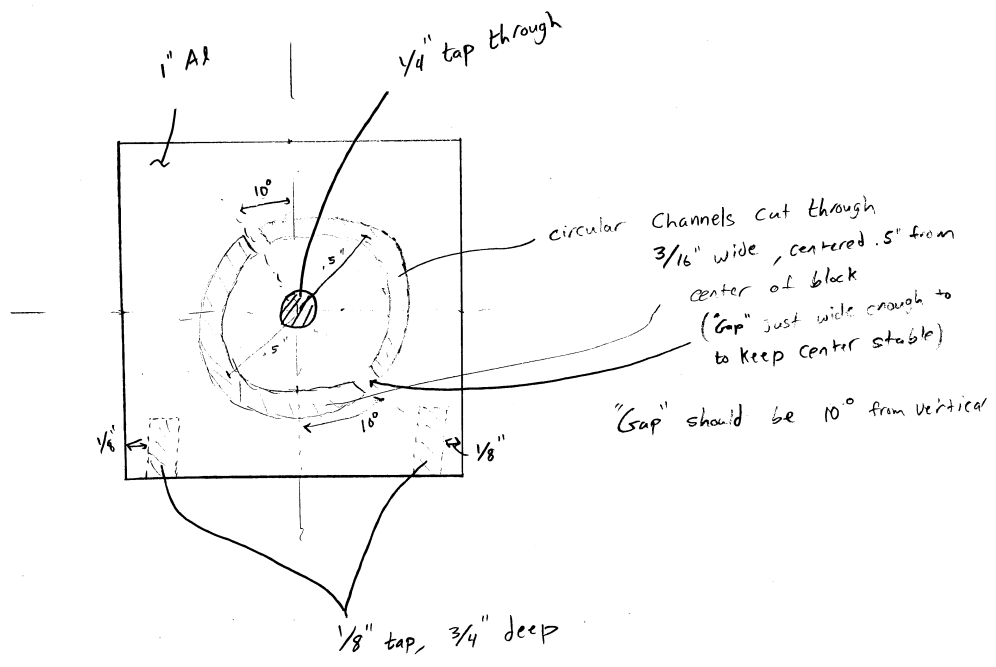 1" Al
1/4" tap through
10°
.5"
.5"
circular Channels cut through
3/16" wide, centered .5" from
center of block
("Gap" just wide enough to
to keep center stable)
"Gap" should be 10° from vertical
10°
1/8"
1/8"
1/8" tap, 3/4" deep